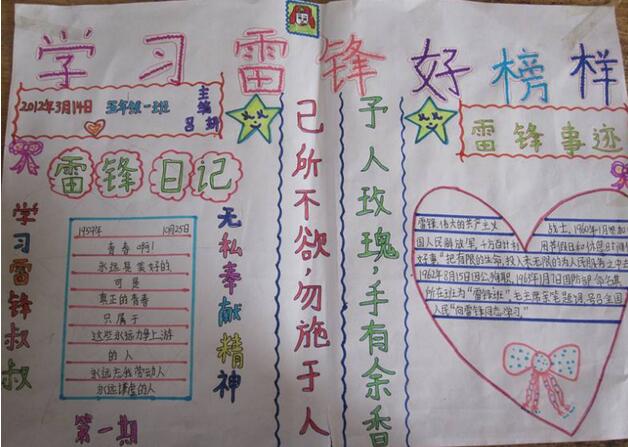 学习雷锋好榜样
2012年3月14日 五年级一班
主编
吕
雷锋日记
学习雷锋叔叔
1959年 10月25日
青春啊!
永远是美好的,
可是
真正的青春
只属于
这些永远力争上游
的人
永远忘我劳动人
永远谦虚的人
无私奉献精神
第一期
己所不欲,勿施于人
予人玫瑰,手有余香
雷锋事迹
雷锋,伟大的共产主义 战士,1960年1月参加
国人民解放军,千方百计 用节假日和休息时
好事"把有限的生命,投入未无限的为人民服务之中去
1962年8月15日因公殉职,1963年1月7日国防部命名
所在班为"雷锋班"毛主席 题词,号召全国
人民"向雷锋同志学习"